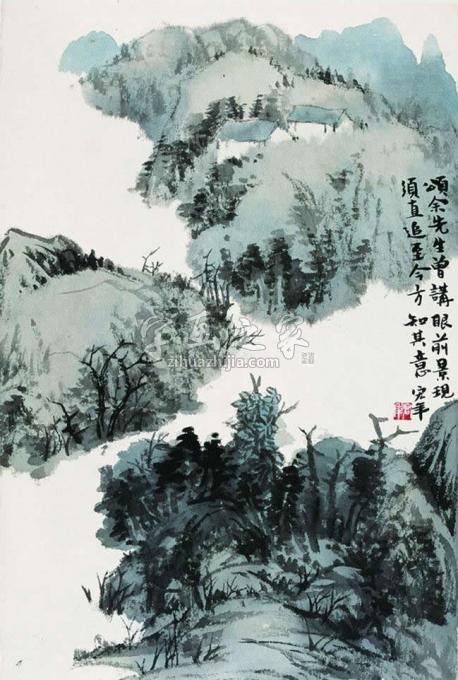 頌余先生曾講眼前景現
須直追至今方知其意 宏年
字画之家
zihuazhijia.com